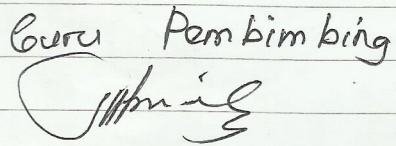 Guru Pembimbing